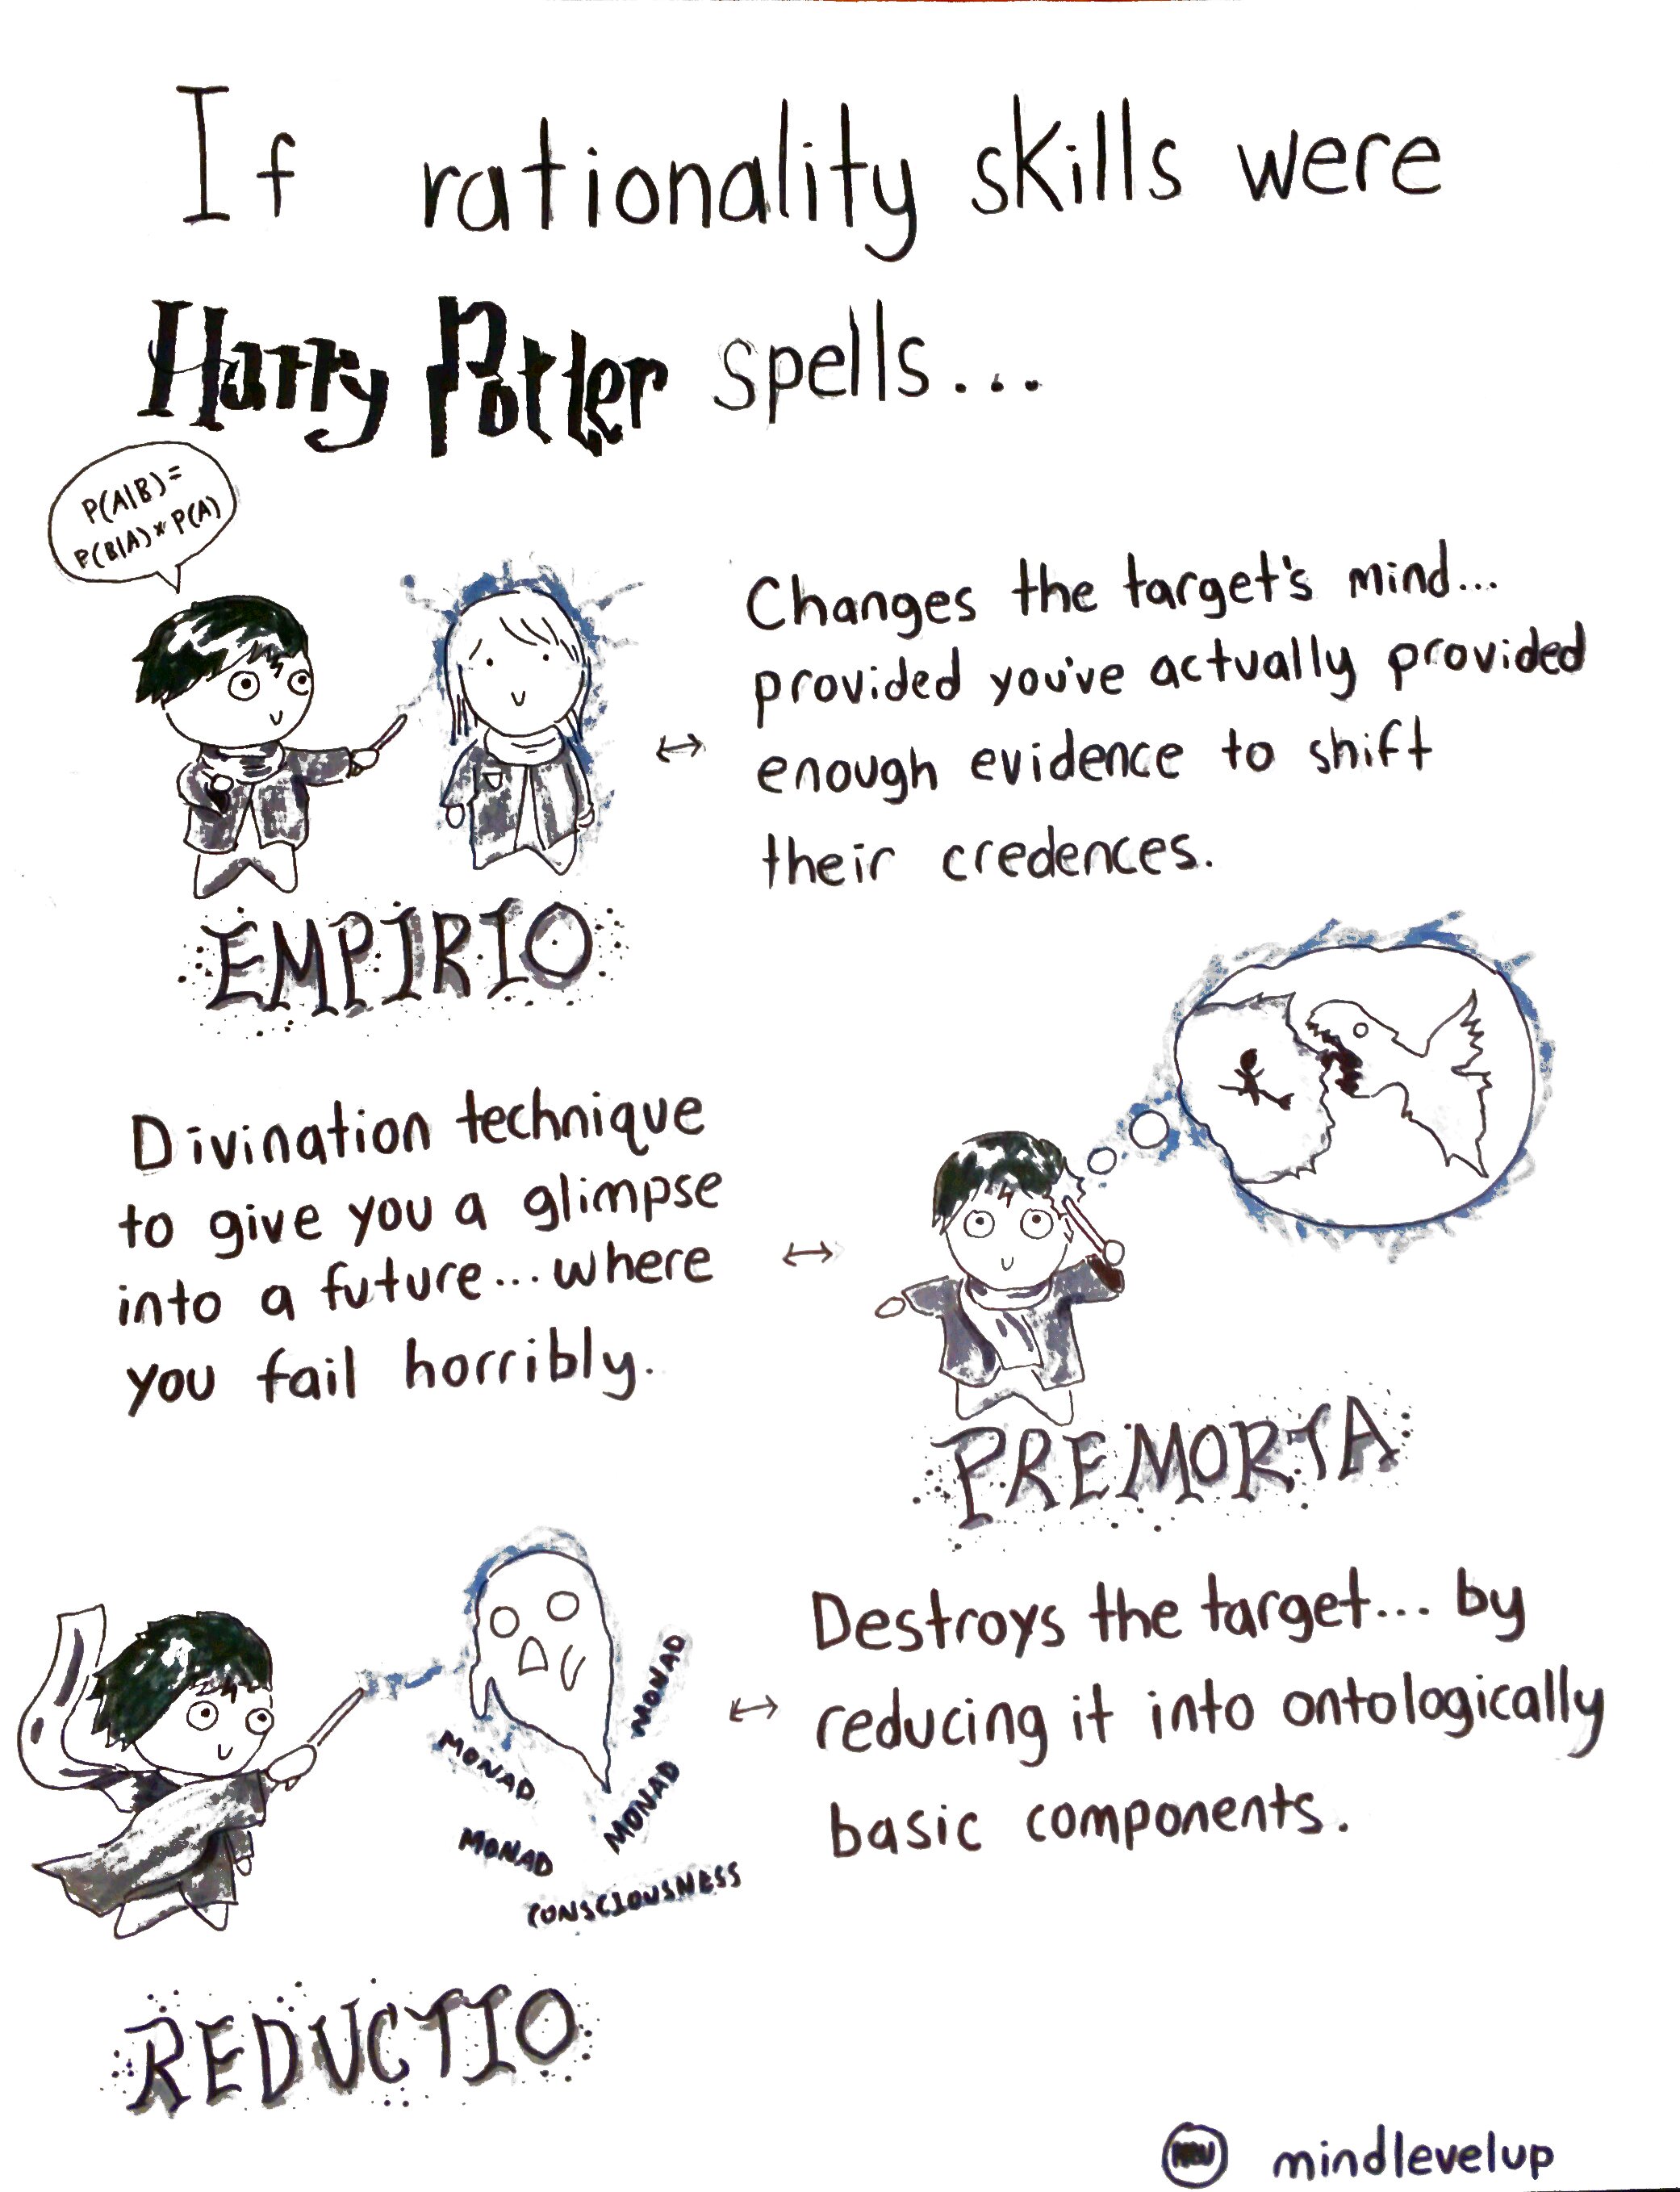 If rationality skills were
Harry Potter spells...
P(A|B)=
P(B|A)*P(A)
Changes the target's mind...
provided you've actually provided
enough evidence to shift
their credences.
EMPIRIO
Divination technique
to give you a glimpse
into a future...where
you fail horribly.
PREMORTA
Destroys the target... by
reducing it into ontologically
basic components.
MONAD
MONAD
MONAD
MONAD
CONSCIOUSNESS
REDUCTIO
MLU mindlevelup